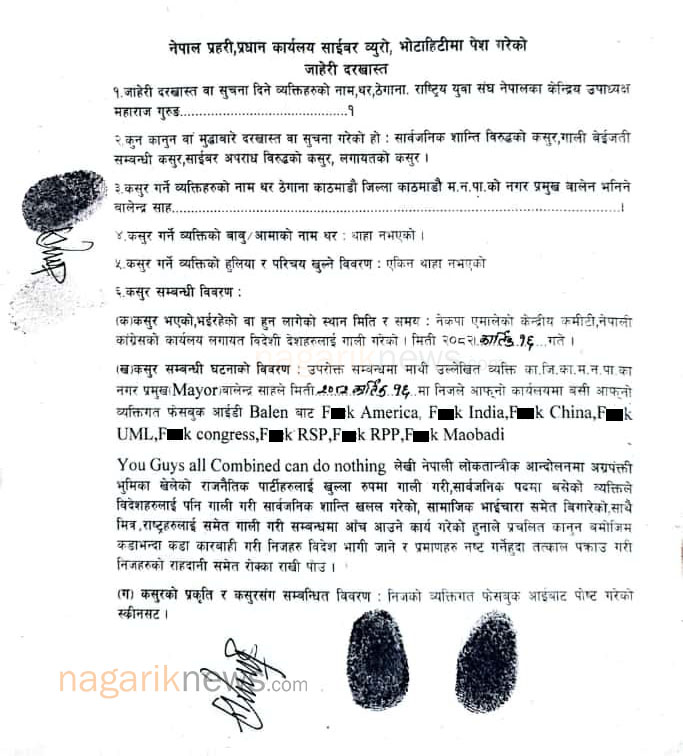 नेपाल प्रहरी,प्रधान कार्यलय साईबर व्युरो, भोटाहिटीमा पेश गरेको
जाहेरी दरखास्त
१.जाहेरी दरखास्त वा सुचना दिने व्यक्तिहरुको नाम,थर,ठेगाना. राष्ट्रिय युवा संघ नेपालका केन्द्रिय उपाध्यक्ष
महाराज गुरुङ.................................१
२.कुन कानुन वा मुद्धाबारे दरखास्त वा सुचना गरेको हो : सार्वजनिक शान्ति विरुद्धको कसुर,गाली बेईजती
सम्बन्धी कसुर,साईबर अपराध विरुद्धको कसुर, लगायतको कसुर ।
३.कसुर गर्ने व्यक्तिहरुको नाम थर ठेगाना काठमाडौ जिल्ला काठमाडौ म.न.पा.को नगर प्रमुख बालेन भनिने
बालेन्द्र साह..........................................................................................।
४.कसुर गर्ने व्यक्तिको बाबु/आमाको नाम थर : थाहा नभएको ।
५.कसुर गर्ने व्यक्तिको हुलिया र परिचय खुल्ने विवरण : एकिन थाहा नभएको
६.कसुर सम्बन्धी विवरण :
(क)कसुर भएको,भईरहेको वा हुन लागेको स्थान मिति र समय : नेकपा एमालेको केन्द्रीय कमीटी,नेपाली
कांग्रेसको कार्यलय लगायत विदेशी देशहरुलाई गाली गरेको । मिति २०८२। कार्तिक १६ गते ।
(ख)कसुर सम्बन्धी घटनाको विवरण : उपरोक्त सम्बन्धमा माथी उल्लेखित व्यक्ति का.जि.का.म.न.पा.का
नगर प्रमुख(Mayor)बालेन्द्र साहले मिति २०८२ कार्तिक १६ मा निजले आफ्नो कार्यलयमा बसी आफ्नो
व्यक्तिगत फेसबुक आईडी Balen बाट F k America, F k India,F k China,F k
UML,F k congress,F k RSP,F k RPP,F k Maobadi
You Guys all Combined can do nothing लेखी नेपाली लोकतान्त्रीक आन्दोलनमा अग्रपंक्ती
भुमिका खेलेको राजनैतिक पार्टिहरुलाई खुल्ला रुपमा गाली गरी,सार्वजनिक पदमा बसेको व्यक्तिले
विदेशहरुलाई पनि गाली गरी सार्वजनिक शान्ति खलल गरेको, सामाजिक भाईचारा समेत बिगारेको.साथै
मित्र,राष्ट्रहरुलाई समेत गाली गरी सम्बन्धमा आँच आउने कार्य गरेको हुनाले प्रचलित कानुन बमोजिम
कडाभन्दा कडा कारबाही गरी निजहरु विदेश भागी जाने र प्रमाणहरु नष्ट गर्नेहुदा तत्काल पक्राउ गरी
निजहरुको राहदानी समेत रोक्का राखी पाँउ ।
(ग) कसुरको प्रकृति र कसुरसंग सम्बन्धित विवरण : निजको व्यक्तिगत फेसबुक आईबाट पोष्ट गरेको
स्कीनसट ।
nagariknews.com
nagariknews.com